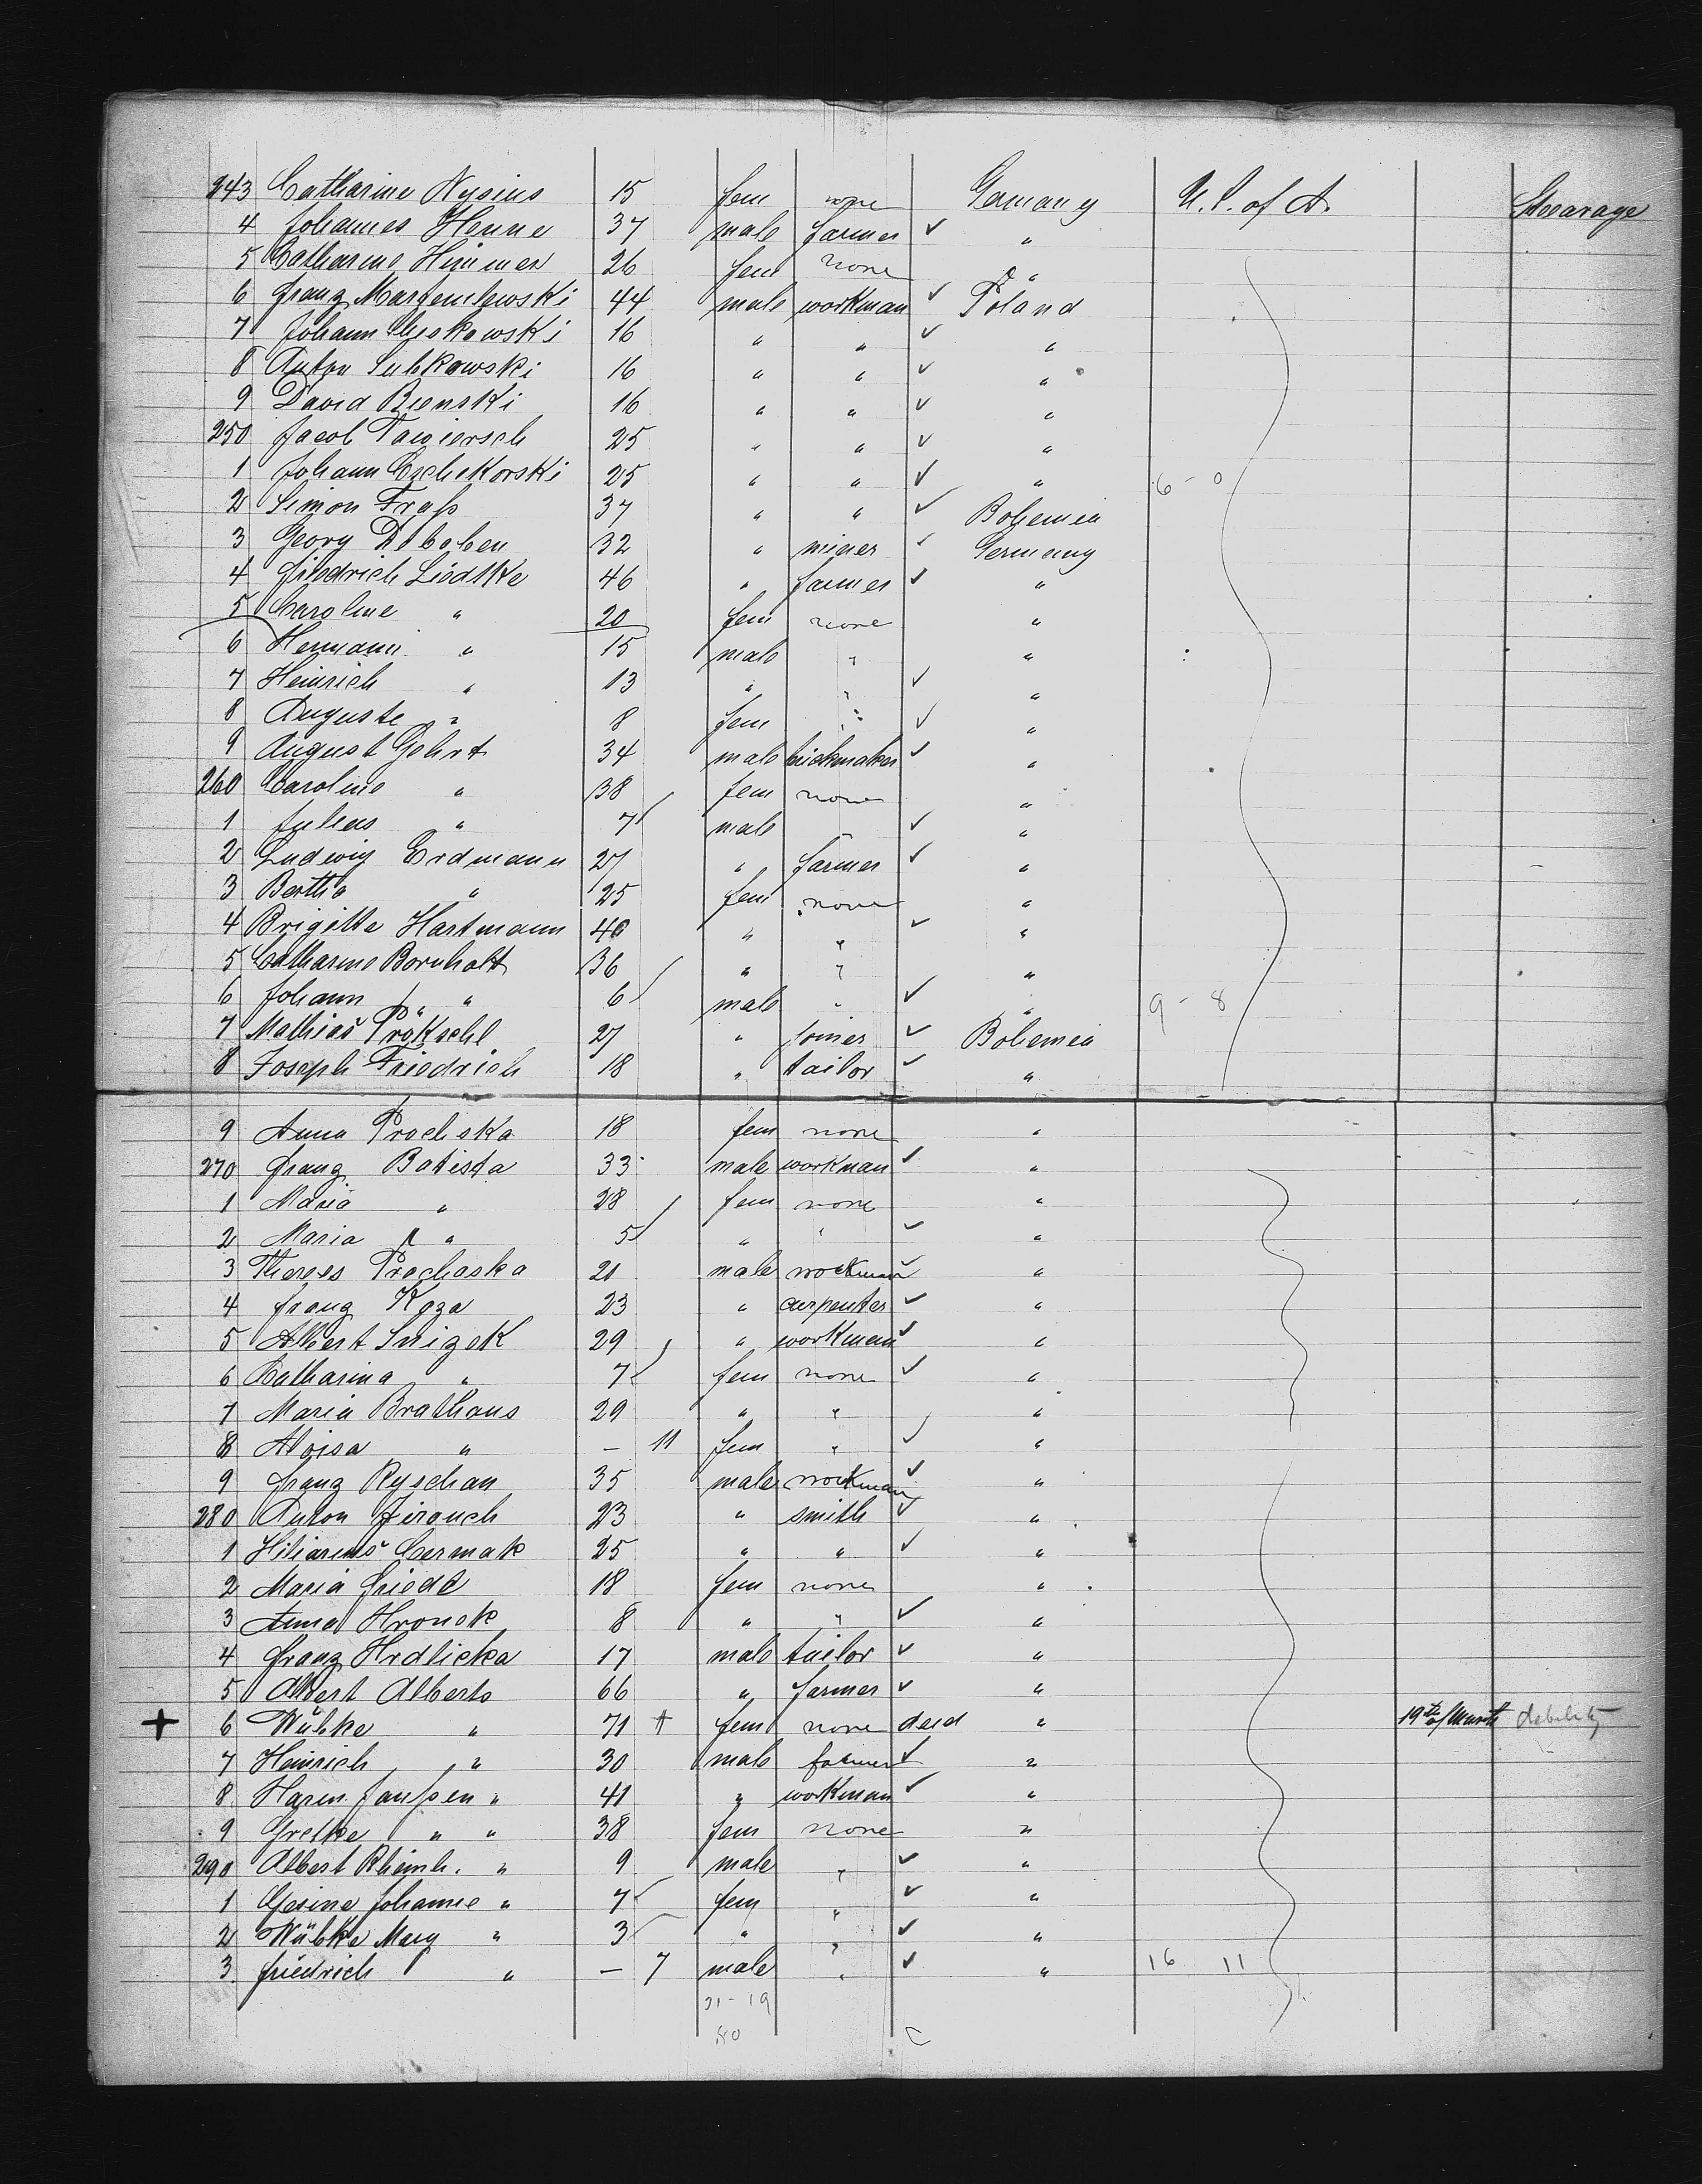 243 Catharine Nysius 15 fem none Germany U. S. of A. Stearage
4 Johannes Henne 37 male farmer ✓ "
5 Catharine Himmer 26 fem none "
6 Franz 44 male workman ✓ Poland
7 Johann 16 " " ✓ "
8 Anton Sulkowski 16 " " ✓ "
9 David Bienski 16 " " ✓ "
250 Jacob 25 " " ✓ "
1 Johann 25 " " ✓ " 6 - 0
2 Simon Fraß 37 " " ✓ Bohemia
3 Georg 32 " miner ✓ Germany
4 Friedrich Liedtke 46 " farmer ✓ "
5 Caroline " 20 fem none "
6 Hermann " 15 male " "
7 Heinrich " 13 " " ✓ "
8 Auguste " 8 fem " ✓ "
9 August Gohrt 34 male brickmaker ✓ "
260 Caroline " 38 fem none "
1 Julius " 7 male ✓ "
2 Ludwig Erdmann 27 " farmer ✓ "
3 Bertha " 25 fem none "
4 Brigitte Hartmann 40 " " ✓ "
5 Catharine Bornholt 36 " " "
6 Johann " 6 male " ✓ " 9 - 8
7 Mathias Prökschl 27 " joiner ✓ Bohemia
8 Joseph Friedrich 18 " tailor ✓ "
9 Anna Prochska 18 fem none "
270 Franz Batista 33 male workman ✓ "
1 Maria " 28 fem none "
2 Maria " 5 " " ✓ "
3 Prochaska 21 male workman ✓ "
4 Franz Koza 23 " carpenter ✓ "
5 Albert Snizek 29 " workman ✓ "
6 Katharina " 7 fem none ✓ "
7 Maria Brathaus 29 " " "
8 Aloisa " – 11 fem " ✓ "
9 Franz Ryschan 35 male workman ✓ "
280 Anton Jirouch 23 " smith ✓ "
1 Hilarius Cermak 25 " " ✓ "
2 Maria Friedl 18 fem none "
3 Anna Hronek 8 " " ✓ "
4 Franz Hrdlicka 17 male tailor ✓ "
5 Albert Alberts 66 " farmer ✓ "
+ 6 Wübke " 71 + fem none died " 19th of March debility
7 Heinrich " 30 male farmer ✓ "
8 Harm Janßen " 41 " workman ✓ "
9 Gretke " " 38 fem none "
290 Albert Rheinh. " 9 male " ✓ "
1 Gesine Johanne " 7 fem " ✓ "
2 Wübke Marg " 3 " " ✓ "
3 Friedrich " – 7 male " ✓ " 16 11
21 - 19
40